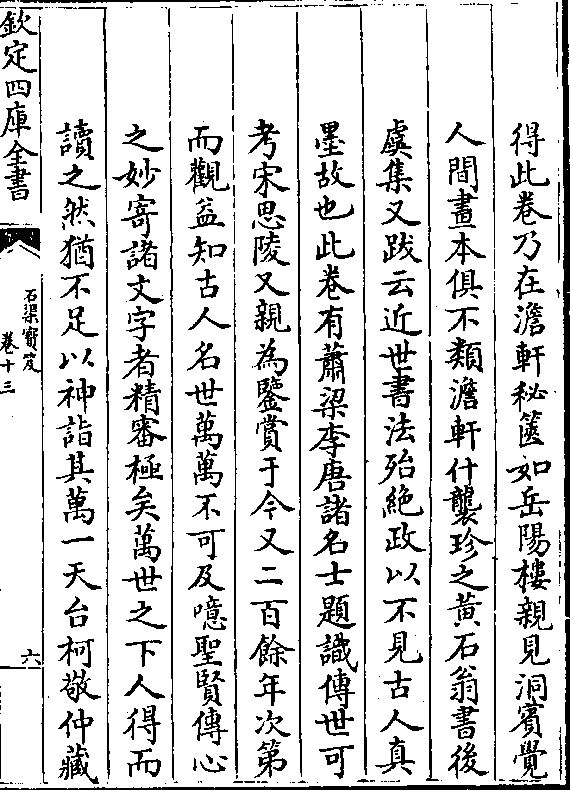 得此卷乃在澹軒秘篋如岳陽樓親見洞賓覺
人間畫本俱不類澹軒什襲珍之黄石翁書後
虞集又跋云近世書法殆絶政以不見古人真
墨故也此卷有蕭梁李唐諸名士題識傳世可
考宋思陵又親為鑒賞于今又二百餘年次第
而觀益知古人名世萬萬不可及噫聖賢傳心
之妙寄諸文字者精審極矣萬世之下人得而
讀之然猶不足以神詣其萬一天台柯敬仲藏
欽定四庫全書
石渠寳笈
卷十三
六